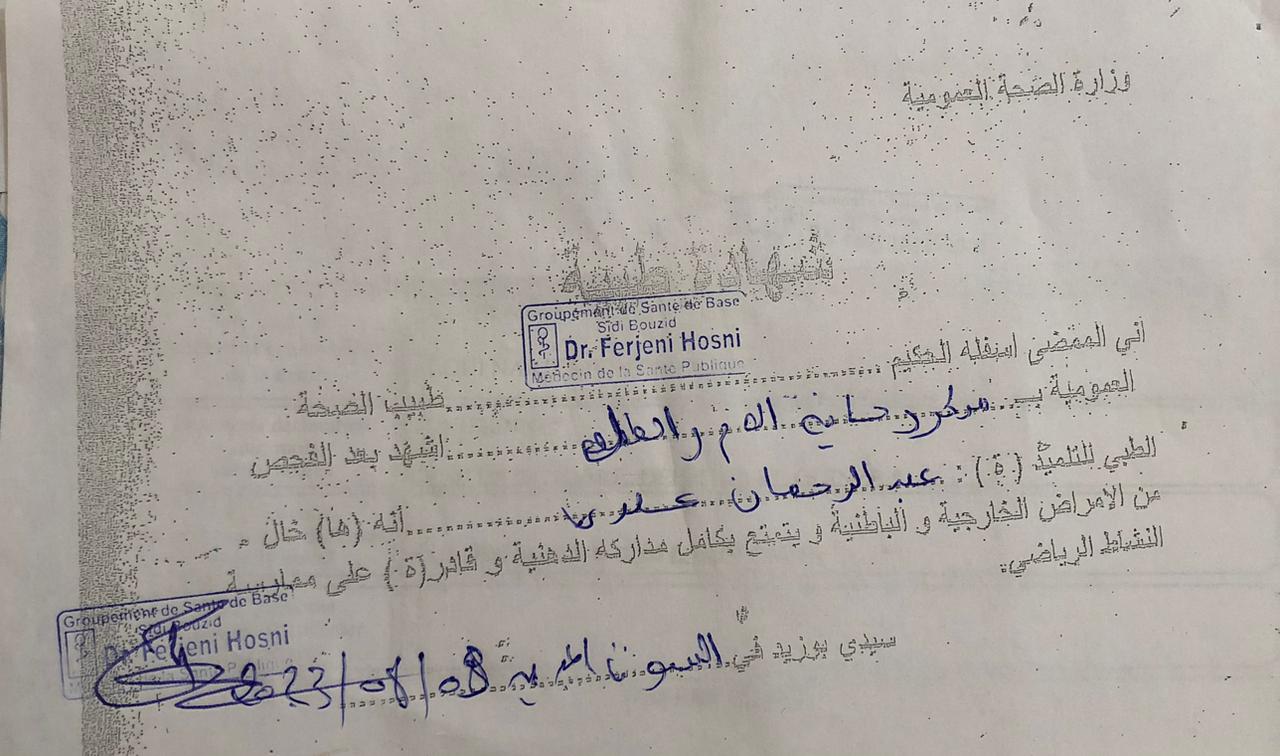 وزارة الصحة العمومية
شهادة طبية
Groupement de Santé de Base
Sidi Bouzid
Dr. Ferjeni Hosni
Médecin de la Santé Publique
اني الممضي اسفله الحكيم ........ طبيب الصحة
العمومية بـ مركز رعاية الام والطفل ........ اشهد بعد الفحص
الطبي للتلميذ (ة) : عبد الرحمان ........ انه (ها) خال
من الامراض الخارجية و الباطنية و يتمتع بكامل مداركه الذهنية و قادر(ة) على ممارسة
النشاط الرياضي.
سيدي بوزيد في 08/08/2023
Groupement de Santé de Base
Sidi Bouzid
Dr. Ferjeni Hosni